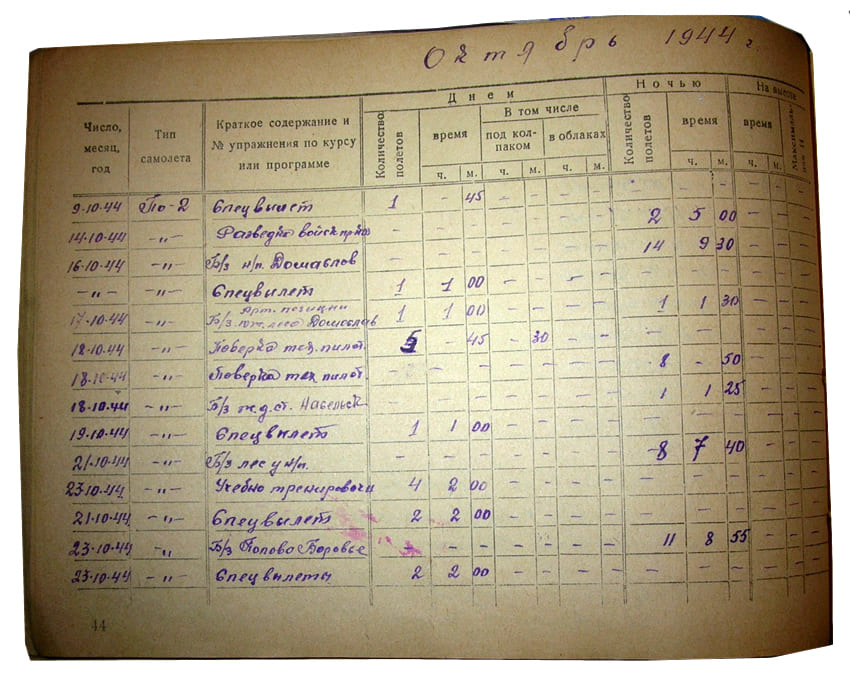 Октябрь 1944 г.
Днем Ночью На высоте
Число, месяц, год Тип самолета Краткое содержание и № упражнения по курсу или программе Количество полетов время В том числе Количество полетов время время
под колпаком в облаках
ч. м. ч. м. ч. м. ч. м. ч. м.
9-10-44 По-2 Спецвылет 1 - 45 - - - - - - - - -
14-10-44 -"- Разведка войск - - - - - - - 2 5 00 - - -
16-10-44 -"- Б/з н/п. Домаслов - - - - - - - 14 9 30 - - -
-"- -"- Спецвылет 1 1 00 - - - - - - - - - -
17-10-44 -"- Б/з Арт. позиции юж. леса Домослав 1 1 00 - - - - 1 1 30 - - -
18-10-44 -"- Поверка тех. пилот. 5 - 45 - 30 - - - - - - - -
18-10-44 -"- Поверка тех пилот. - - - - - - 8 - 50 - - -
18-10-44 -"- Б/з ж.д.ст. Насельск - - - - - - - 1 1 25 - - -
19-10-44 -"- Спецвылет 1 1 00 - - - - - - - - - -
21-10-44 -"- Б/з лес у н/п. - - - - - - - 8 7 40 - - -
23-10-44 -"- Учебно тренировочн 4 2 00 - - - - - - - - - -
21-10-44 -"- Спецвылет 2 2 00 - - - - - - - - - -
23-10-44 -"- Б/з Попово Боровое - - - - - - - 11 8 55 - - -
23-10-44 -"- Спецвылеты 2 2 00 - - - - - - - - - -
44